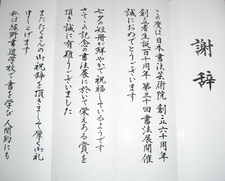 謝辞
この度は日本書法芸術院創立六十周年
創立者生誕百十周年第三十回書法展開催
誠におめでとうございます
七夕の姫冊が華やかさで祝福しているようです
さて、記念の書法展に於いて栄えある賞を
頂き誠に有難うございました
またたくさんの御祝辞を頂きまして厚く御礼
申し上げます
書道学校で書を学び人間的にも